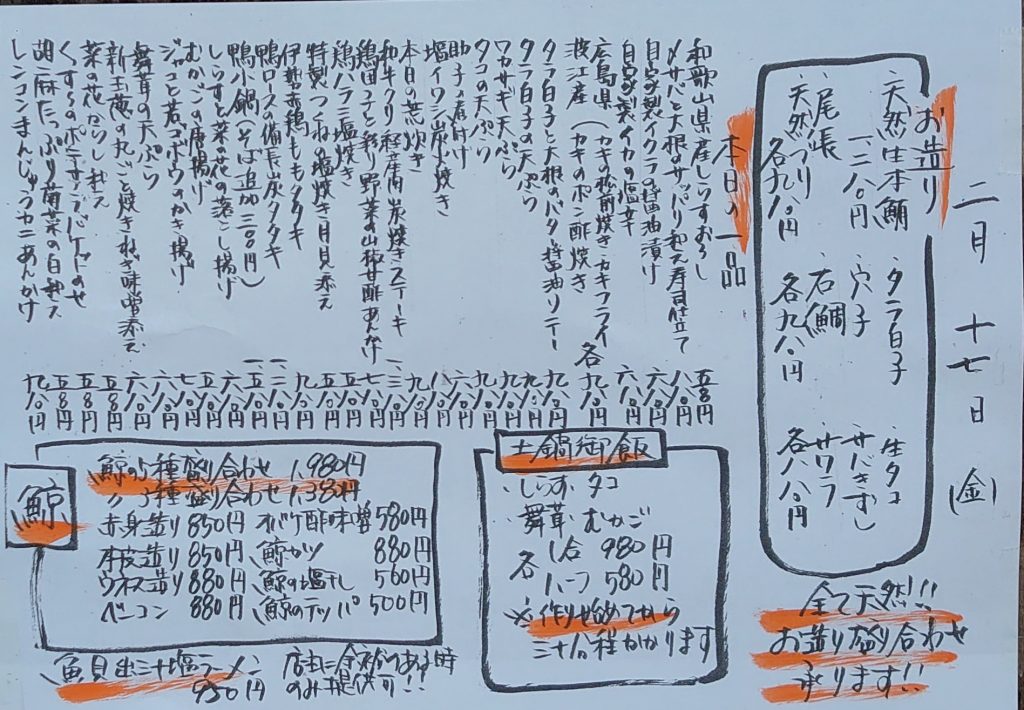 二月十七日(金)
お造り
天然生本鮪 一二八〇円
尾張
天然ブリ
各九八〇円
タラ白子
穴子
石鯛
各九八〇円
生タコ
サバきずし
サワラ
各八八〇円
全て天然!!
お造り盛り合わせ
承ります!!
本日の一品
和歌山県産しらすおろし 五八〇円
〆サバと大根のサッパリ和え寿司仕立て 八八〇円
自家製イクラの醤油漬け 六八〇円
自家製イカの塩辛 六八〇円
広島県 カキの松前焼き・カキフライ
波江産(カキのポン酢焼き 各九八〇円
タラ白子と大根のバター醤油ソテー 九八〇円
タラ白子の天ぷら 九八〇円
ワカサギ天ぷら
タコの天ぷら 九八〇円
助子の煮付け 六八〇円
塩イワシ炭火焼き
本日の荒炊き 九八〇円
和牛クリ 経産肉 炭焼きステーキ
鶏団子と彩り野菜の山椒甘酢あんかけ
鶏ハラミ塩焼き
特製つくねの塩焼き月見添え
伊勢赤鶏ももタタキ 九八〇円
鴨ロースの備長炭タタキ
鴨小鍋(そば追加三〇〇円)
しらすと菜の花の落とし揚げ
むかごの唐揚げ
ジャコと若ゴボウのかき揚げ 六八〇円
舞茸の天ぷら 六八〇円
新玉葱の丸ごと焼きねぎ味噌添え
菜の花からし和え 五八〇円
くするのポテサラ バケットのせ
胡麻たっぷり菊菜の白和え 五八〇円
レンコンまんじゅうカニあんかけ 九八〇円
土鍋御飯
しらす・タコ
舞茸・むかご
各 1合 980円
ハーフ 580円
※作り始めてから
三十分程かかります
鯨
鯨の5種盛り合わせ 1,980円
〃 3種盛り合わせ 1,380円
赤身造り 850円 オバケ酢味噌 580円
本皮造り 850円 鯨カツ 880円
ウネス造り 880円 鯨の塩干し 560円
ベーコン 880円 鯨のテッパ 500円
魚貝出汁塩ラーメン
950円
店主に余裕のある時
のみ提供可!!